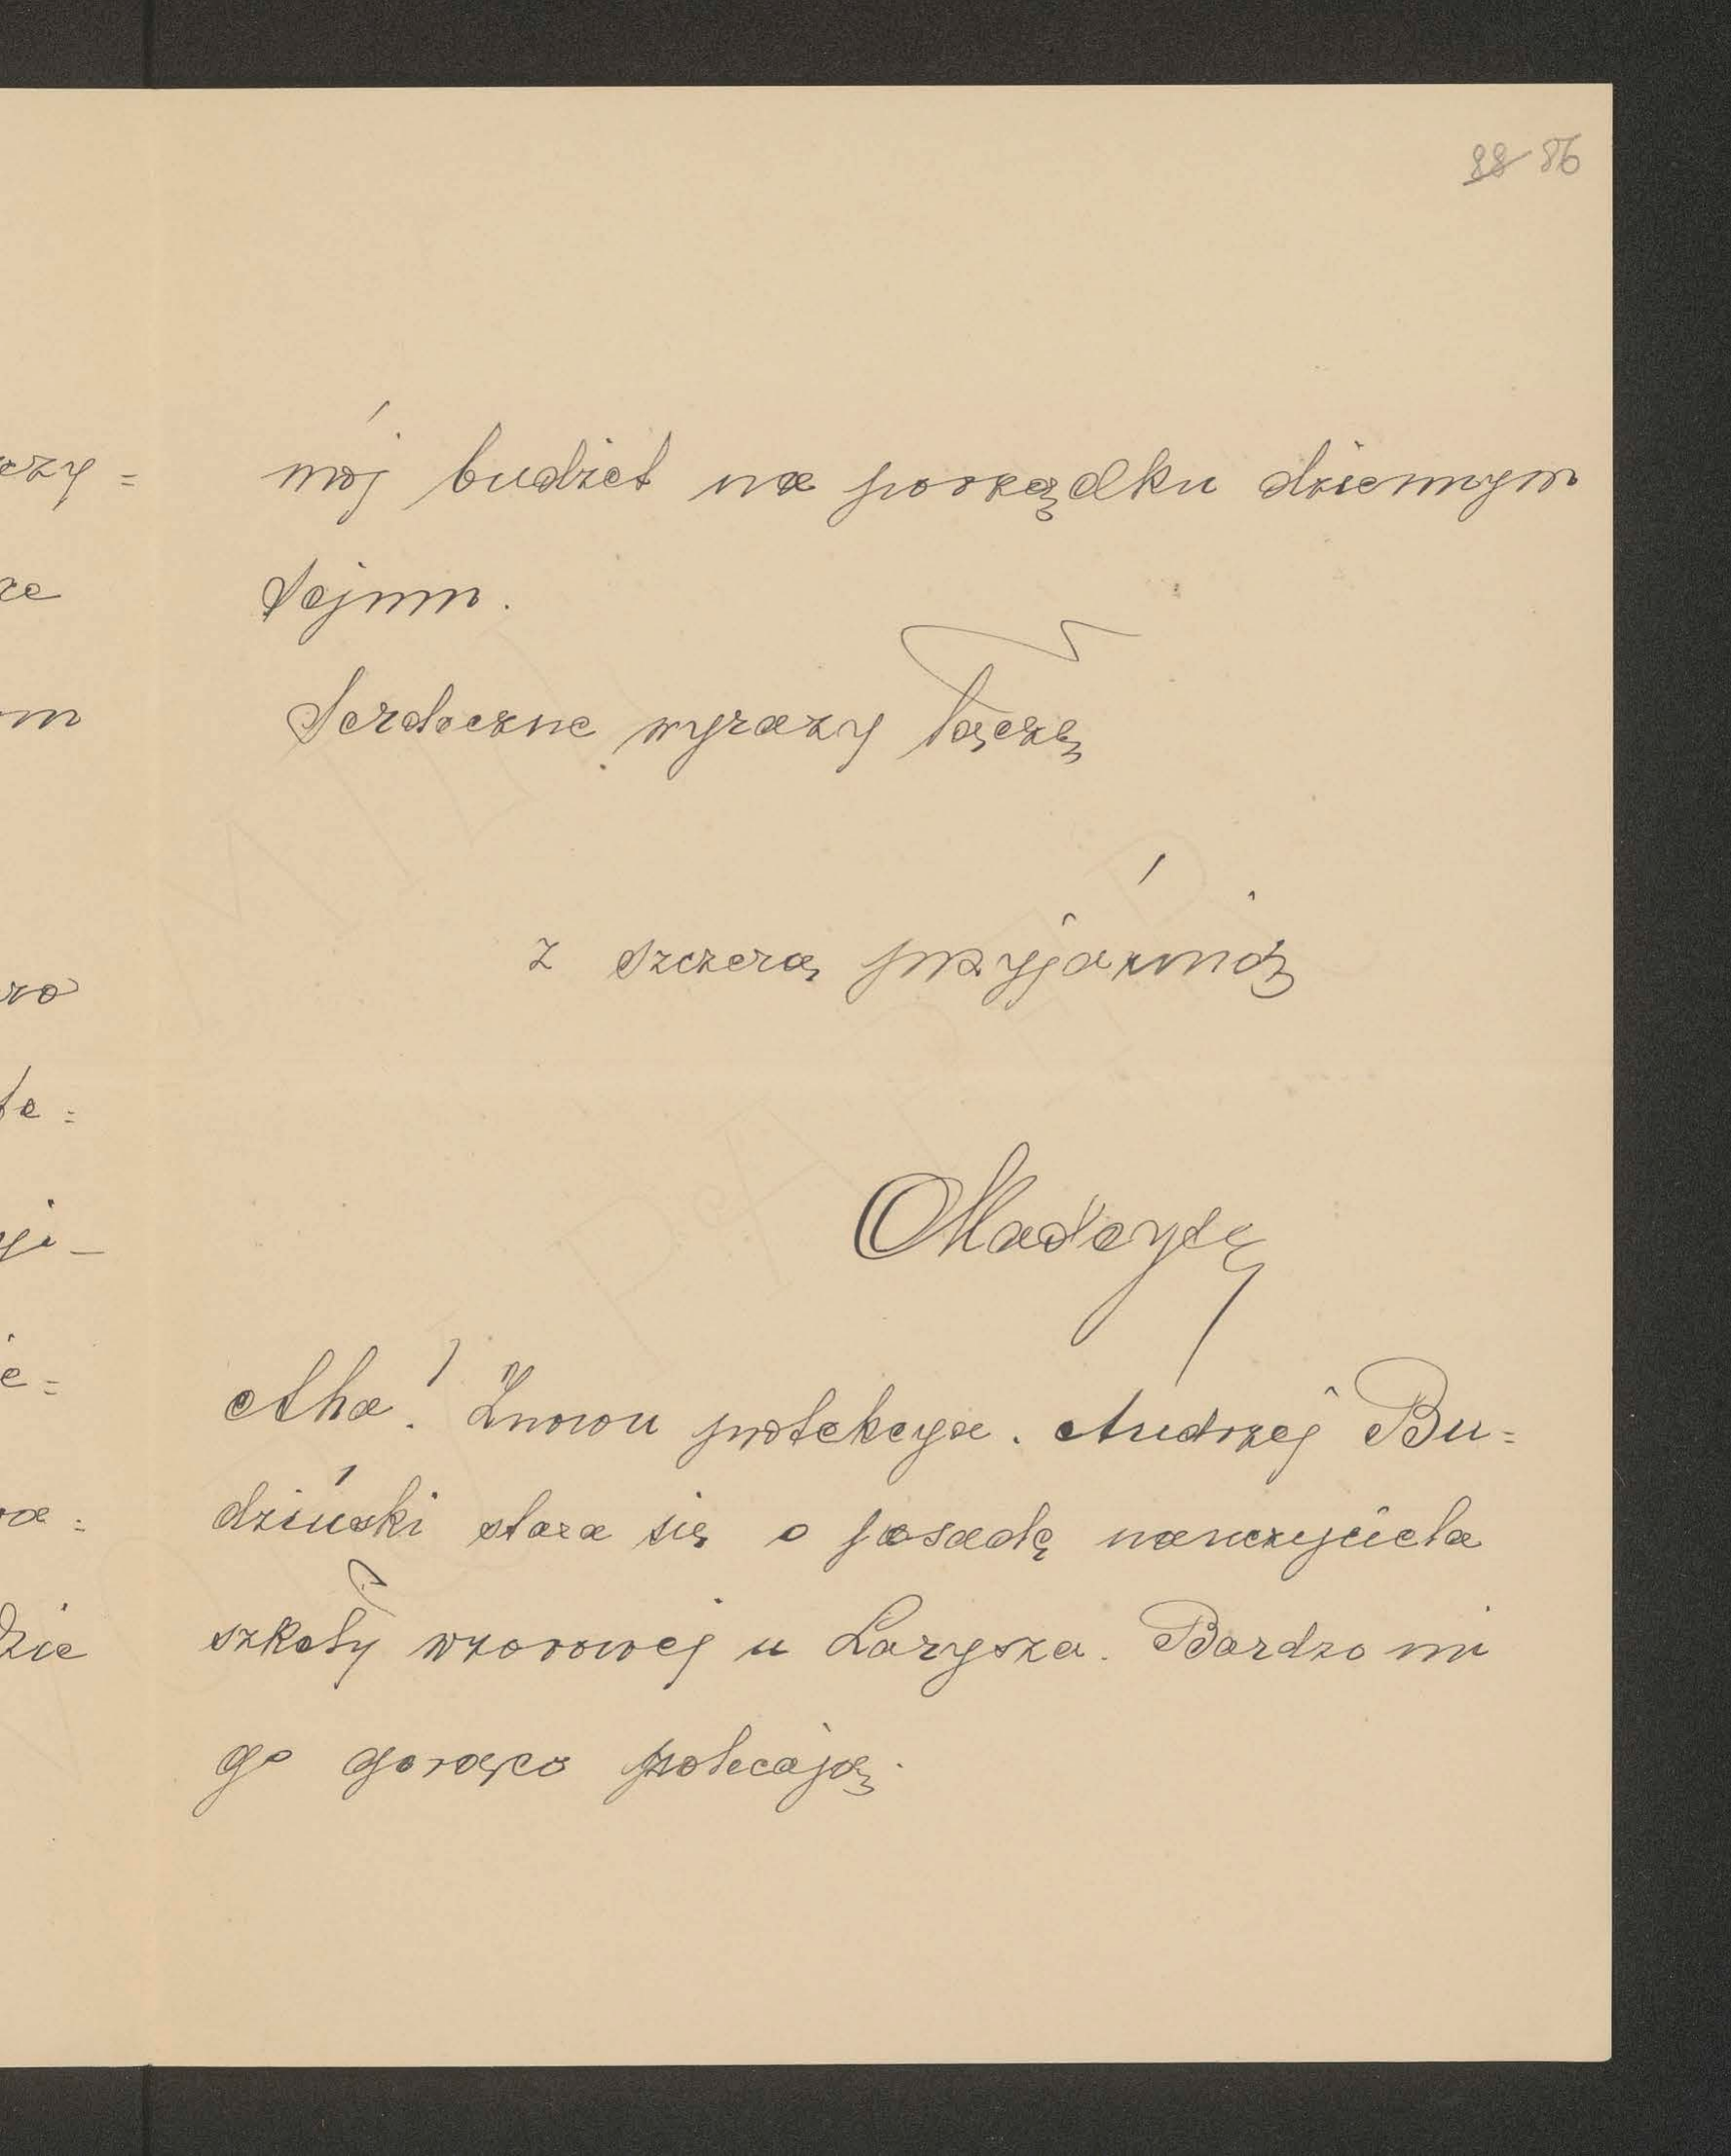 88 86
czy =
mój budżet na porządku dziennym
ze
Sejmu.
om
Serdeczne wyrazy łączę
ro
z szczerą przyjaźnią
te =
Madeyski
Aha! Znowu protekcya. Andrzej Bu=
dziński stara się o posadę nauczyciela
szkoły wzorowej u Larysza. Bardzo mi
dzie
go gorąco polecają.